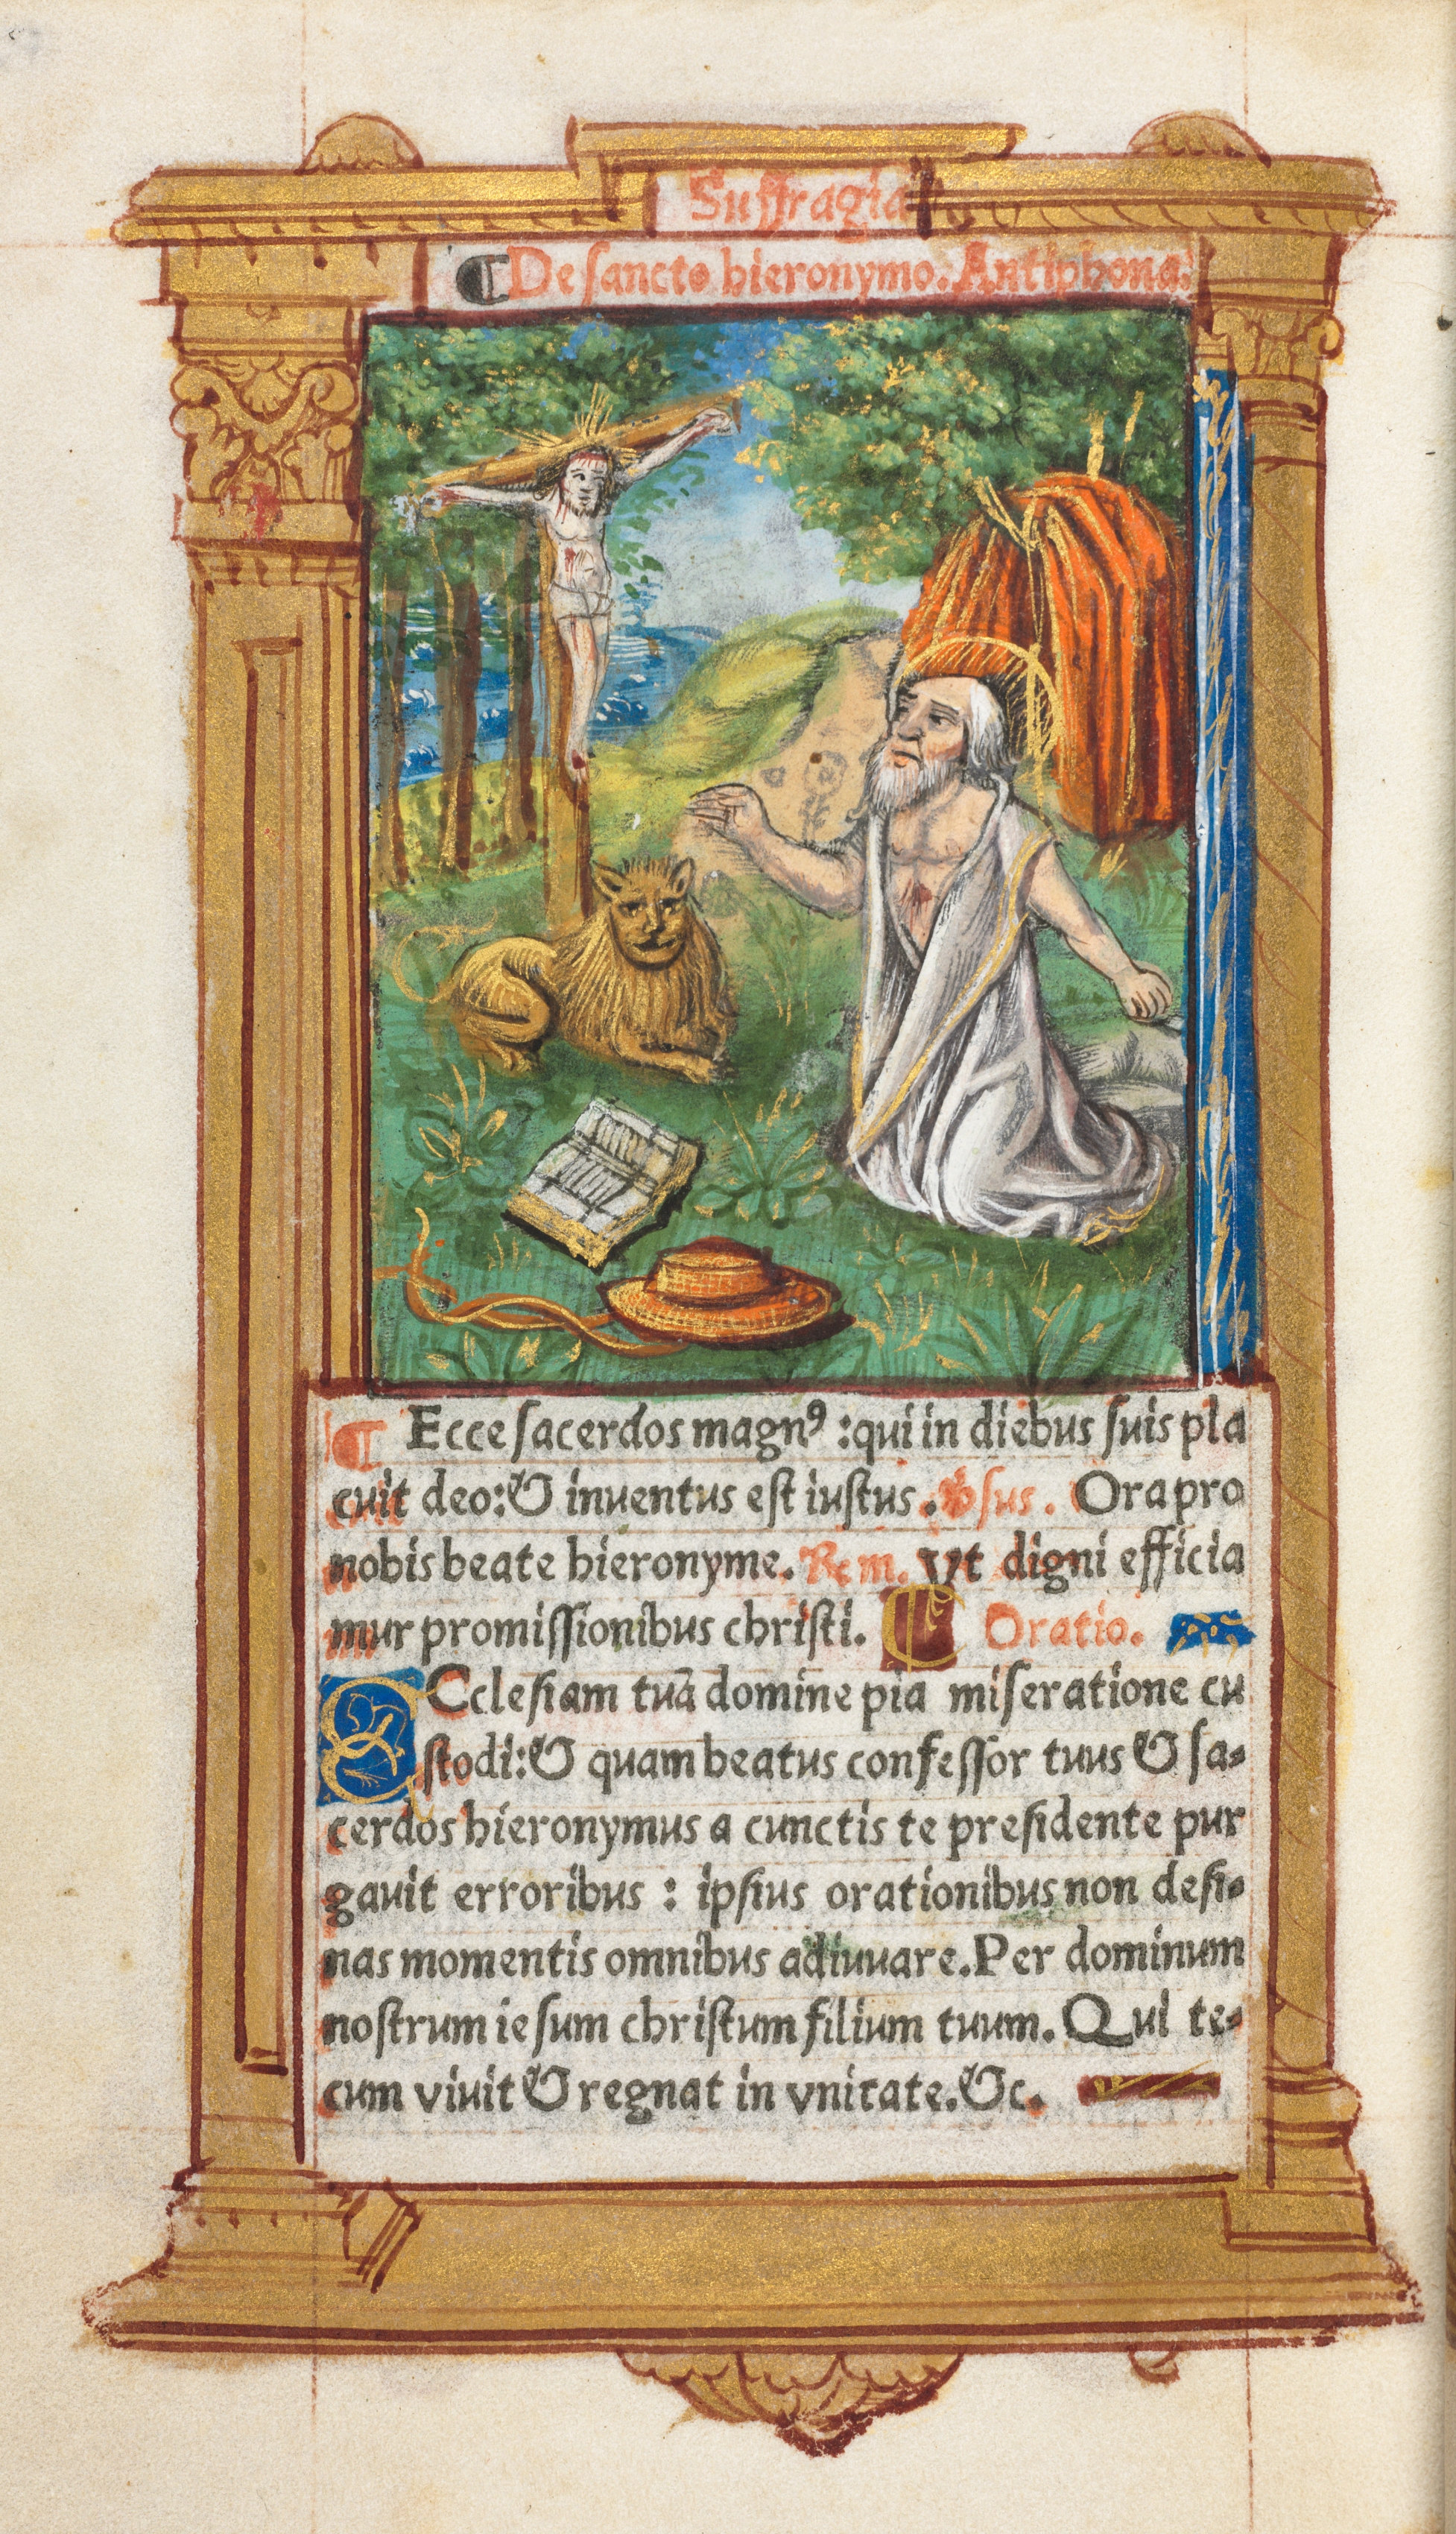 Suffragia
¶ De sancto hieronymo. Antiphona.
¶ Ecce sacerdos magnꝰ :qui in diebus suis pla
cuit deo:& inventus est iustus. ℣sus. Ora pro
nobis beate hieronyme. ℞m. Vt digni efficia
mur promissionibus christi. ¶ Oratio.
ECclesiam tuã domine pia miseratione cu
stodi:& quam beatus confessor tuus & sa-
cerdos hieronymus a cunctis te presidente pur
gauit erroribus : ipsius orationibus non desi-
nas momentis omnibus adiuuare. Per dominum
nostrum iesum christum filium tuum. Qui te-
cum viuit & regnat in vnitate.&c.